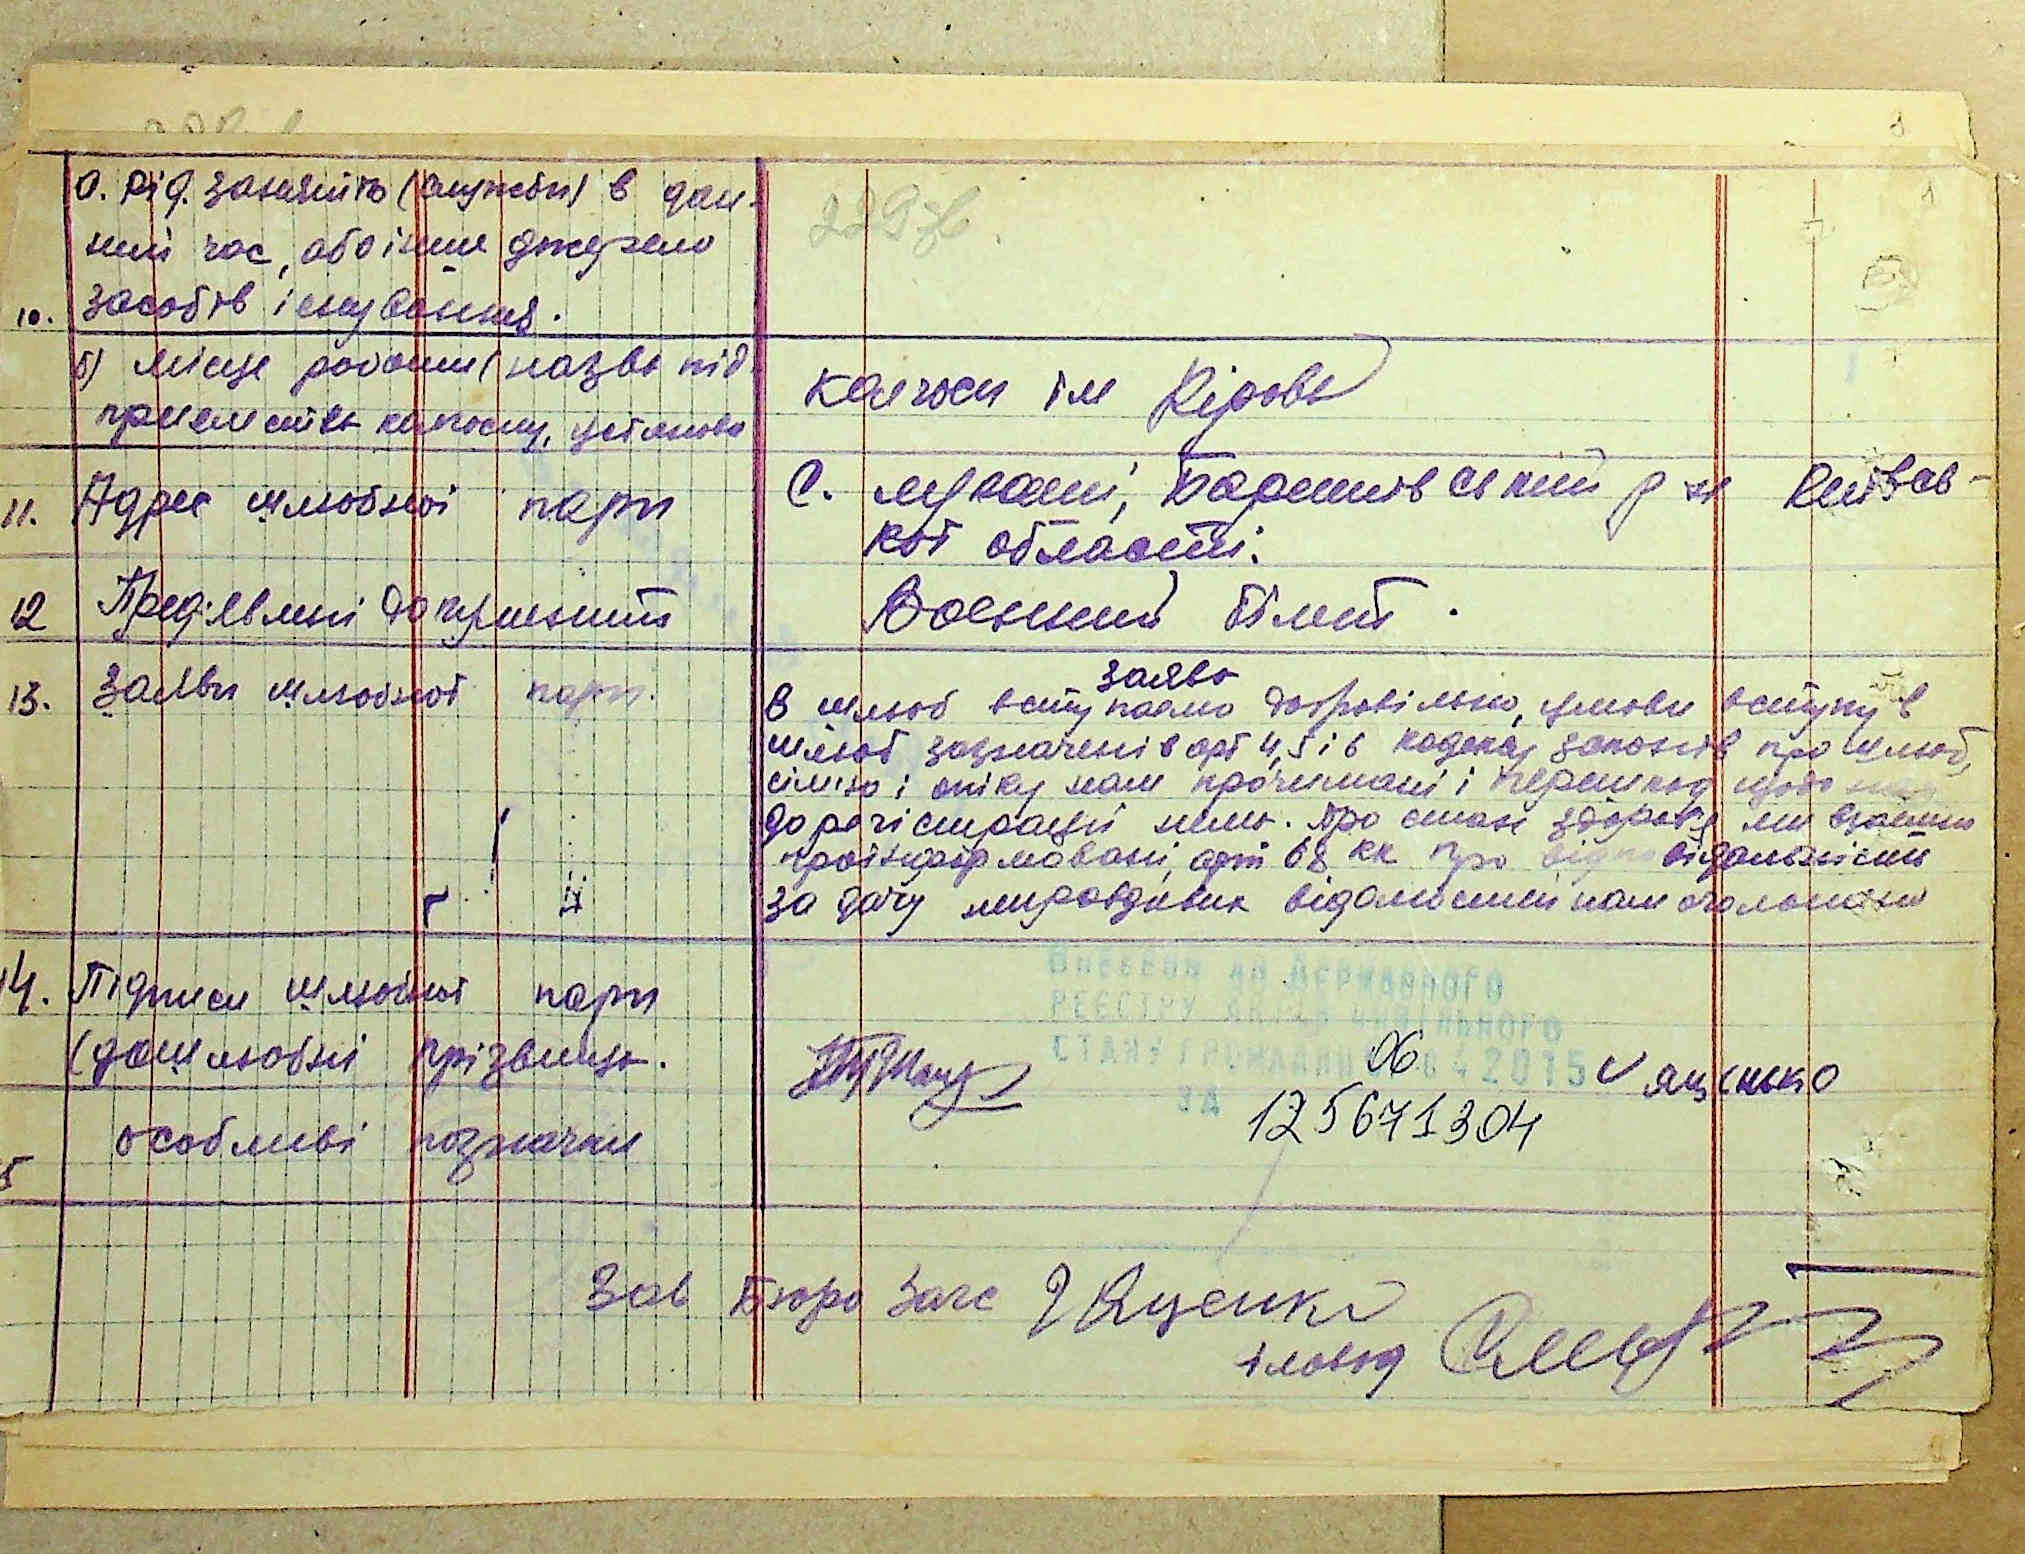 229 зв.
а. рід занять (служби) в дан-
ний час, або інше джерело
10. засобів існування.
б) місце роботи (назва під
приємства колгоспу, установа
колгосп ім Кірова
11. Адрес шлюбної пари
С. Лукаші, Баришівський р-н Київсь-
кої області.
12 Пред'явлені документи
Воєнний білет.
13. Заяви шлюбної пари.
заява
В шлюб вступаємо добровільно, умови вступу в
шлюб зазначені в арт 4, 5 і 6 кодексу законів про шлюб,
сім'ю і опіку нам прочитані і перешкод щодо
до реєстрації нема. Про стан здоров'я ми взаємно
проінформовані, арт 68 КК про відповідальність
за дачу неправдивих відомостей нам оголошено
14. Підписи шлюбної пари
(дошлюбні прізвища.
ВНЕСЕНИ ДО ДЕРЖАВНОГО
РЕЄСТРУ АКТІВ ЦИВІЛЬНОГО
СТАНУ ГРОМАДЯН 06 04 2015
ЗА 125671304
Яценко
особливі позначки
5
Зав Бюро Загс Яценко